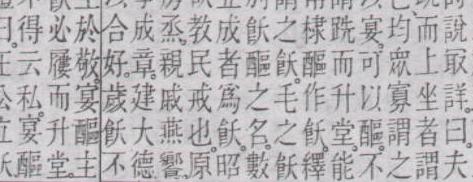 說取詳曰。夫
而上坐者謂
均眾寡謂之
宴。可以醧。不
跣而升堂。能
棣醧作飫。繹
之飫。毛之飫
飫醧之名。數
成者為飫。昭
教民戒也。原
烝。親戚燕饗。
成章。建大德
合好。歲飫不
於敬。宴醧主
必屨而升堂。
得云私宴醧